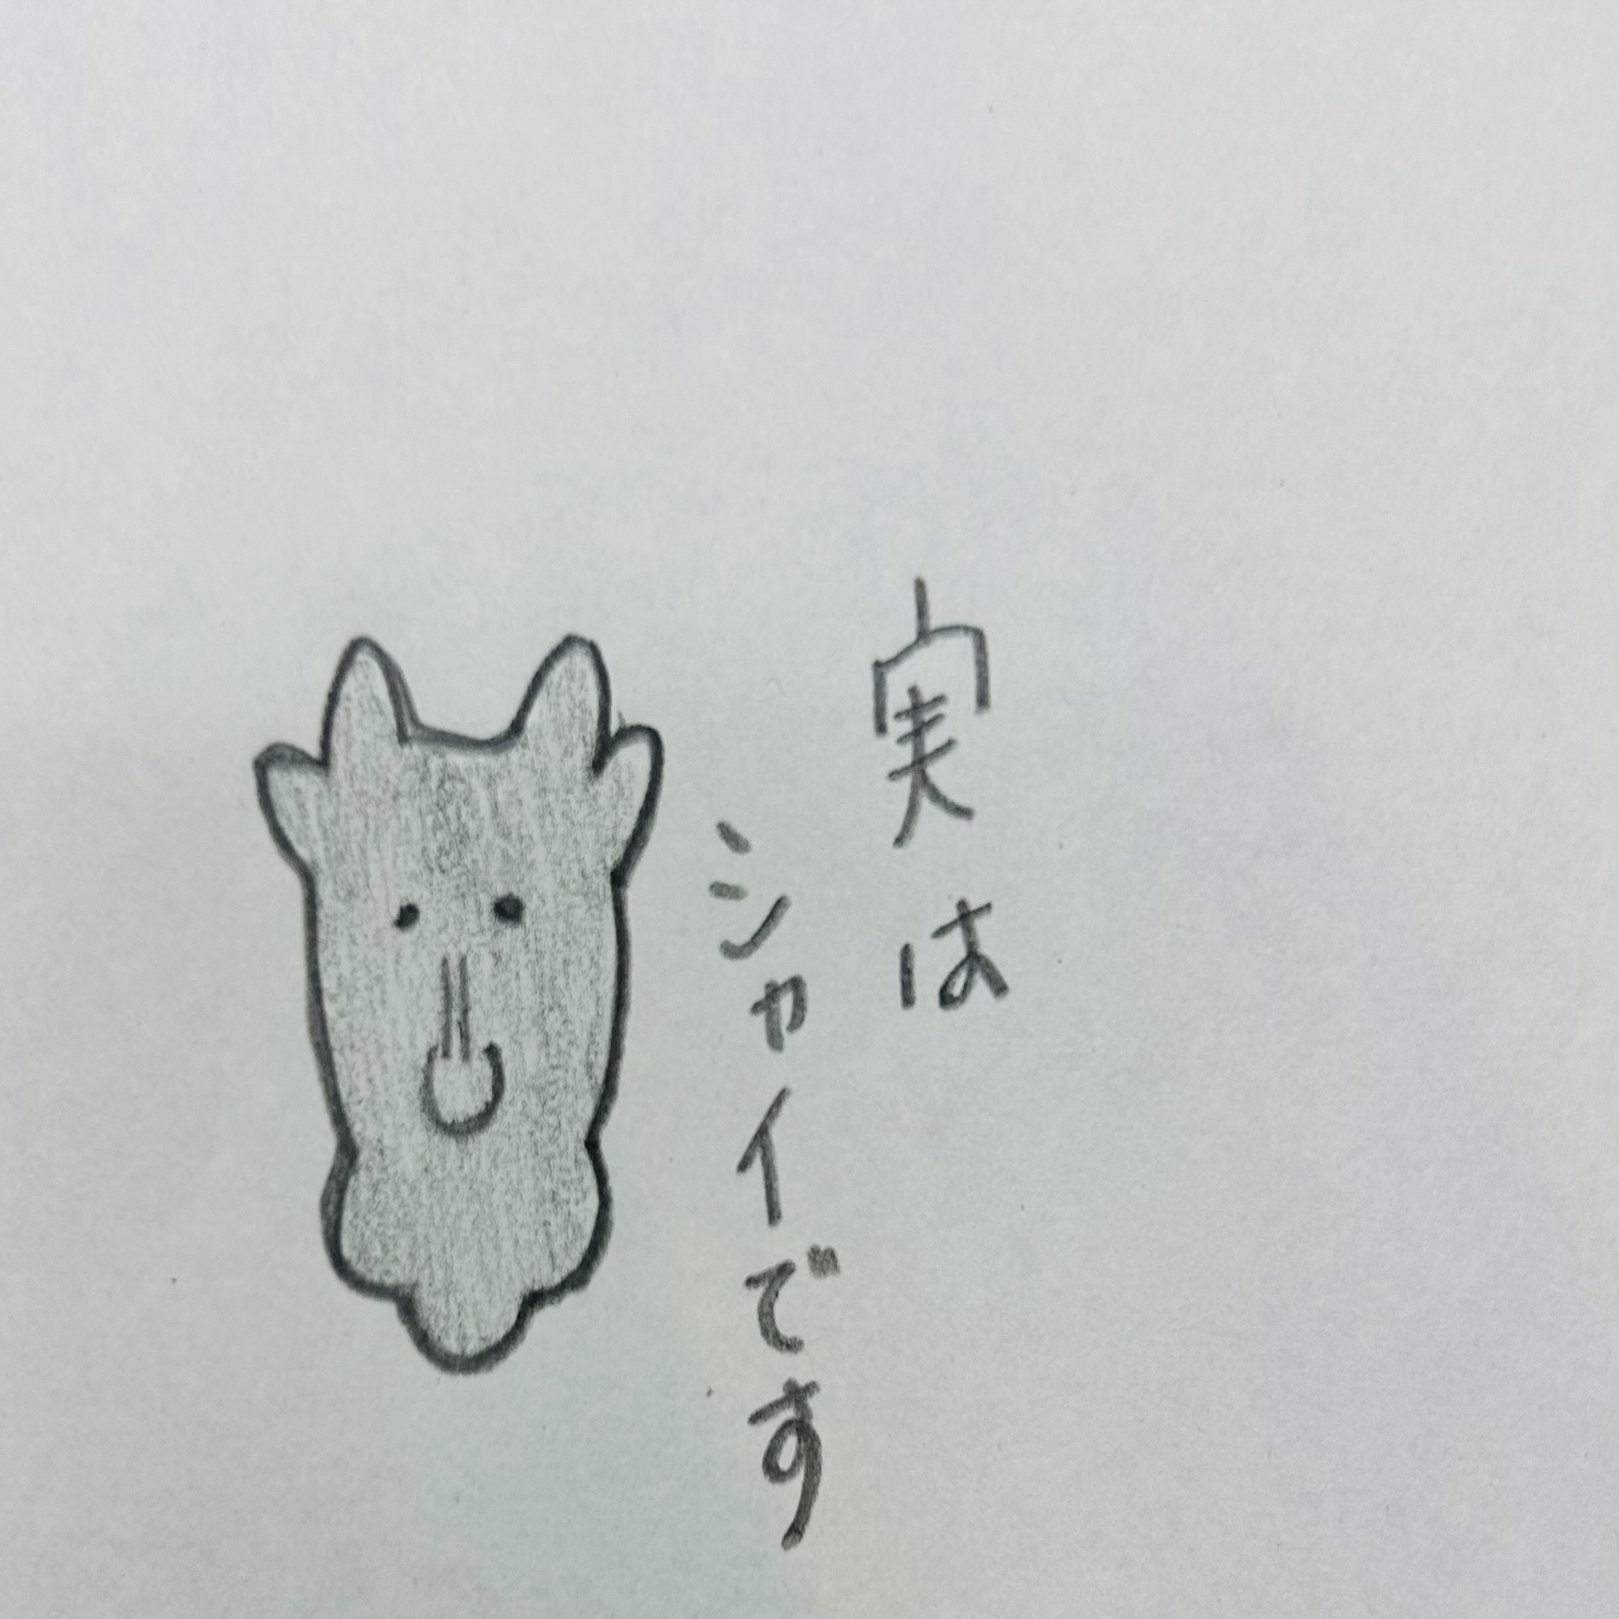 実は
シャイです